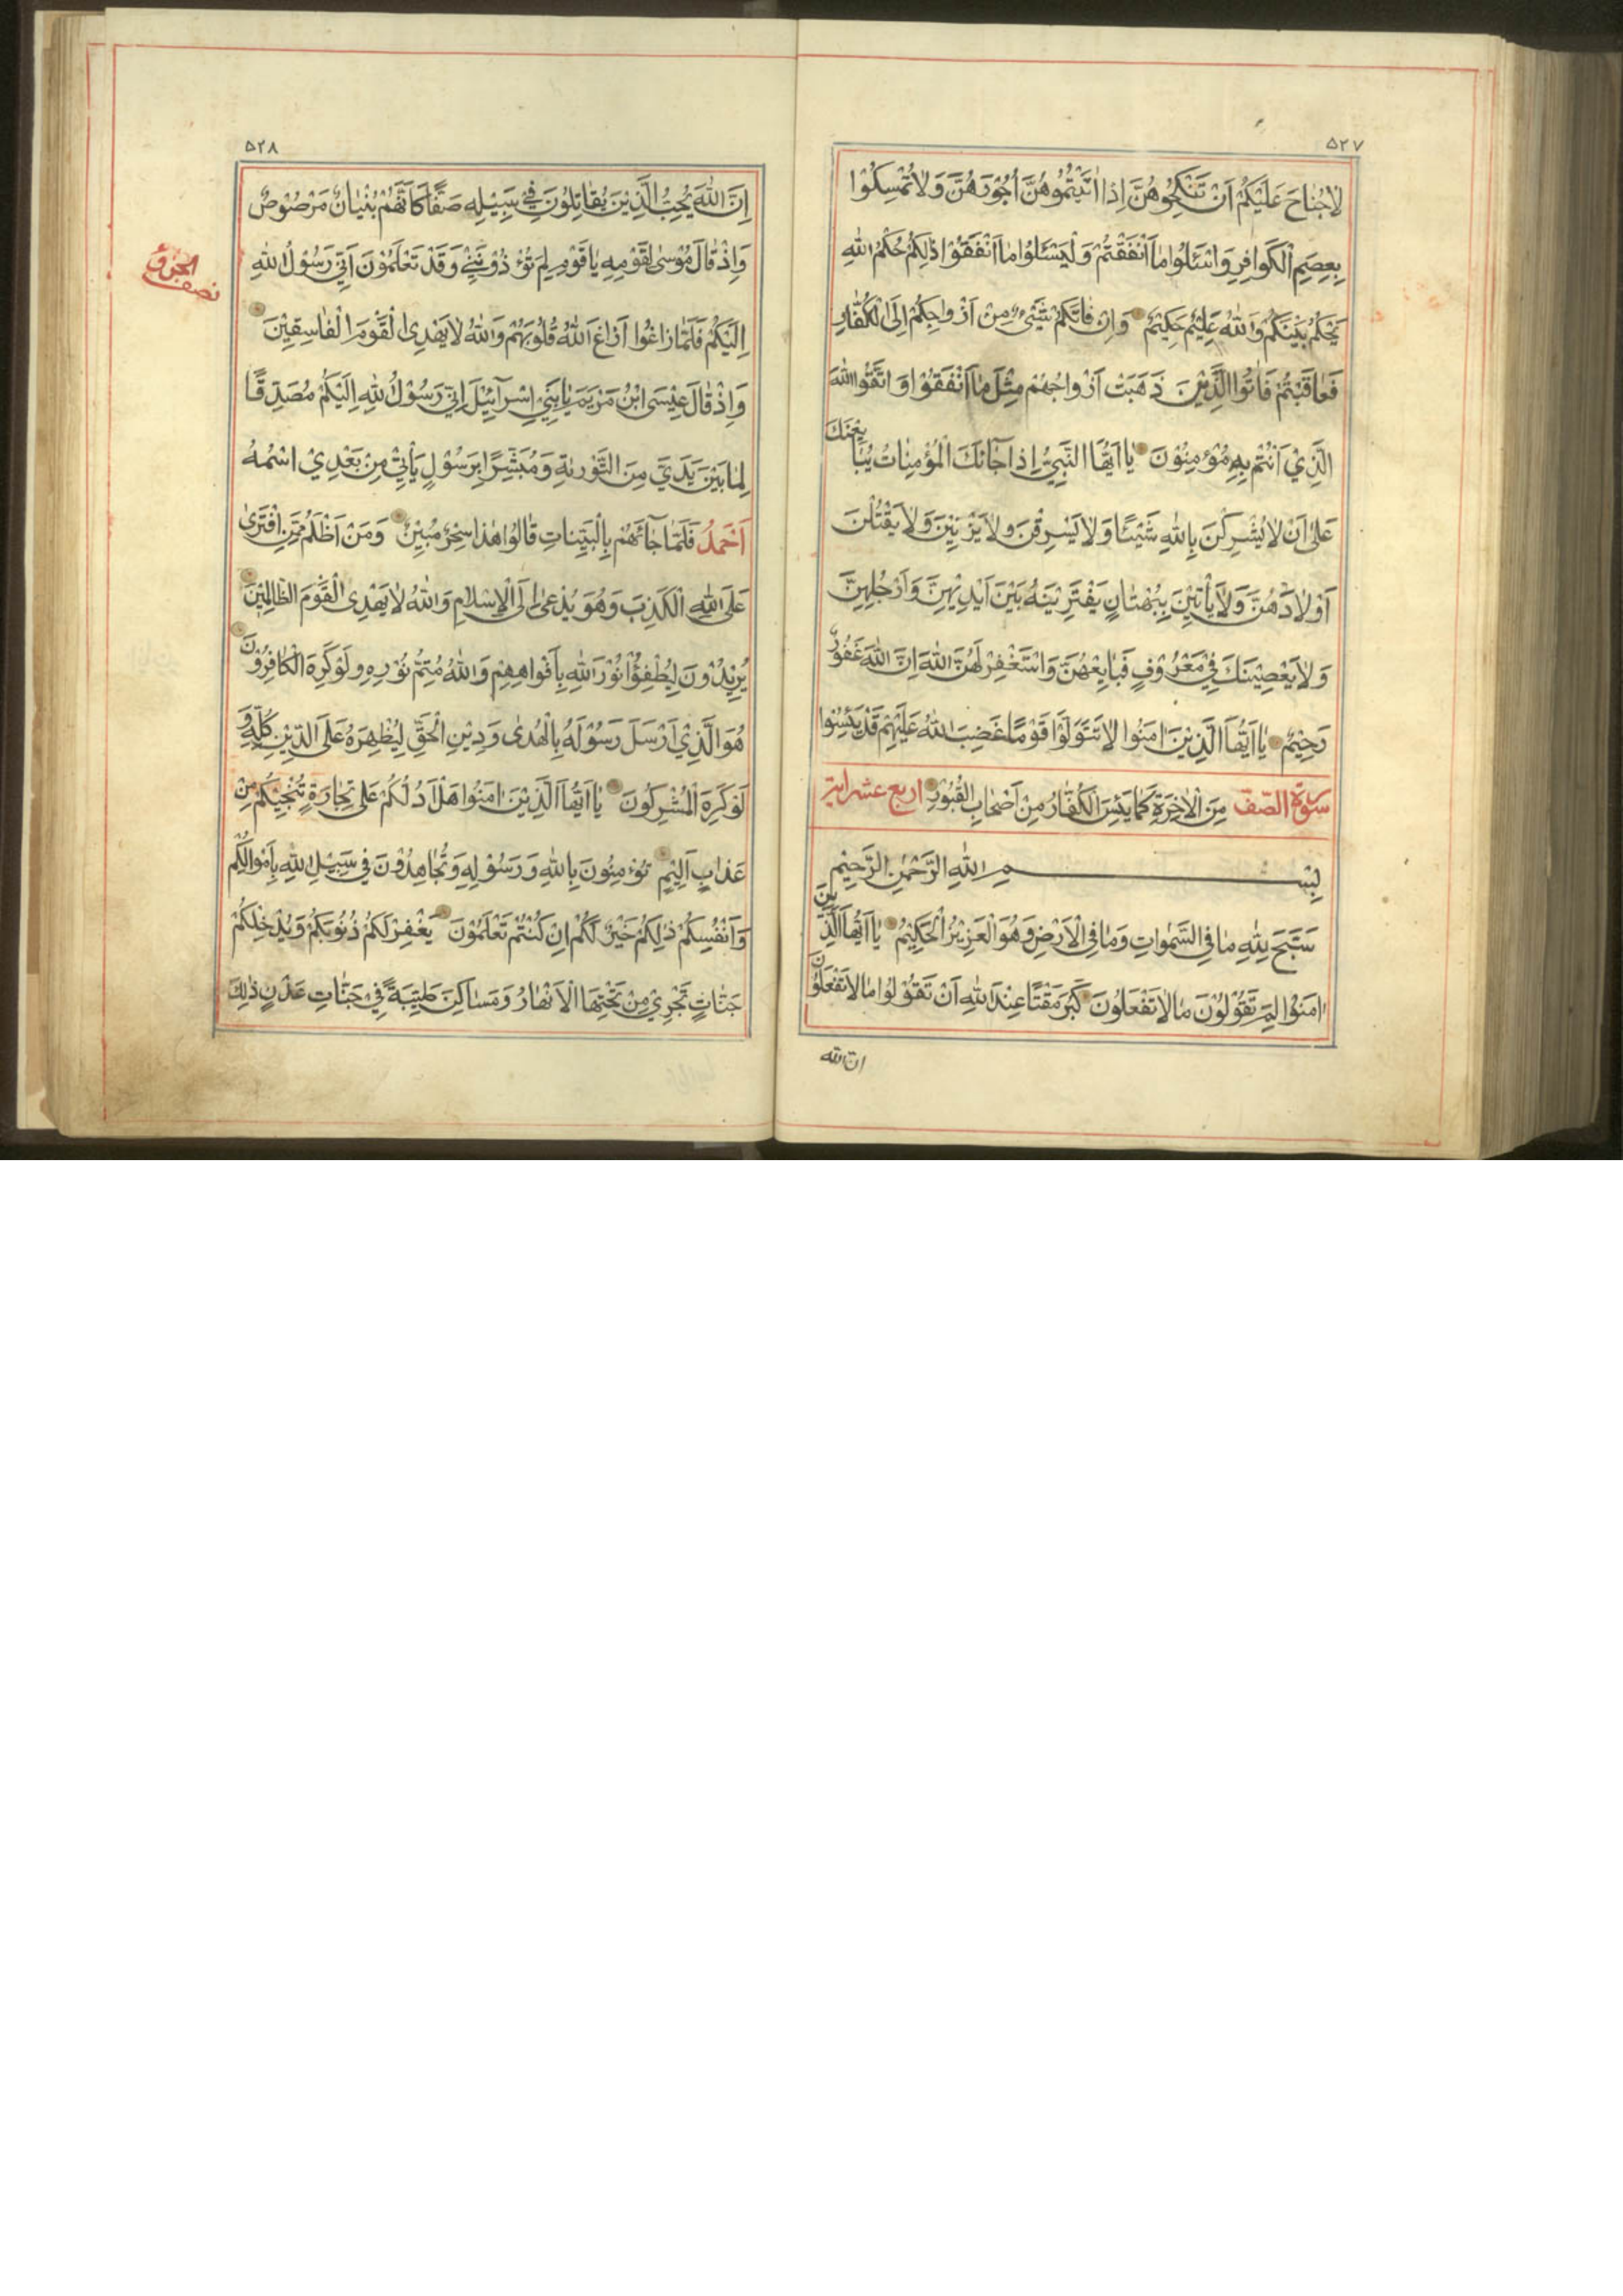 ٥٢٧
لَاجُنَاحَ عَلَيْكُمْ اَنْ تَنْكِحُوهُنَّ اِذَا اٰتَيْتُمُوهُنَّ اُجُورَهُنَّ وَلَا تُمْسِكُوْا
بِعِصَمِ الْكَوَافِرِ وَاسْئَلُوا مَا اَنْفَقْتُمْ وَلْيَسْئَلُوا مَا اَنْفَقُوْا ذٰلِكُمْ حُكْمُ اللّٰهِ
يَحْكُمُ بَيْنَكُمْ وَاللّٰهُ عَلِيْمٌ حَكِيْمٌ وَاِنْ فَاتَكُمْ شَيْئٌ مِنْ اَزْوَاجِكُمْ اِلَى الْكُفَّارِ
فَعَاقَبْتُمْ فَاٰتُوا الَّذِيْنَ ذَهَبَتْ اَزْوَاجُهُمْ مِثْلَ مَا اَنْفَقُوْا وَاتَّقُوا اللّٰهَ
الَّذِيْ اَنْتُمْ بِهِ مُؤْمِنُوْنَ يَا اَيُّهَا النَّبِيُّ اِذَا جَآئَكَ الْمُؤْمِنَاتُ يُبَايِعْنَكَ
عَلٰى اَنْ لَا يُشْرِكْنَ بِاللّٰهِ شَيْئًا وَلَا يَسْرِقْنَ وَلَا يَزْنِيْنَ وَلَا يَقْتُلْنَ
اَوْلَادَهُنَّ وَلَا يَأْتِيْنَ بِبُهْتَانٍ يَفْتَرِيْنَهُ بَيْنَ اَيْدِيْهِنَّ وَاَرْجُلِهِنَّ
وَلَا يَعْصِيْنَكَ فِيْ مَعْرُوْفٍ فَبَايِعْهُنَّ وَاسْتَغْفِرْ لَهُنَّ اللّٰهَ اِنَّ اللّٰهَ غَفُوْرٌ
رَحِيْمٌ يَا اَيُّهَا الَّذِيْنَ اٰمَنُوا لَا تَتَوَلَّوْا قَوْمًا غَضِبَ اللّٰهُ عَلَيْهِمْ قَدْ يَئِسُوْا
سورة الصّف مِنَ الْاٰخِرَةِ كَمَا يَئِسَ الْكُفَّارُ مِنْ اَصْحَابِ الْقُبُوْرِ اربع عشر اية
بِسْمِ اللّٰهِ الرَّحْمٰنِ الرَّحِيْمِ
سَبَّحَ لِلّٰهِ مَا فِي السَّمٰوَاتِ وَمَا فِي الْاَرْضِ وَهُوَ الْعَزِيْزُ الْحَكِيْمُ يَا اَيُّهَا الَّذِيْنَ
اٰمَنُوْا لِمَ تَقُوْلُوْنَ مَا لَا تَفْعَلُوْنَ كَبُرَ مَقْتًا عِنْدَ اللّٰهِ اَنْ تَقُوْلُوا مَا لَا تَفْعَلُوْنَ
ان الله
٥٢٨
اِنَّ اللّٰهَ يُحِبُّ الَّذِيْنَ يُقَاتِلُوْنَ فِيْ سَبِيْلِهِ صَفًّا كَاَنَّهُمْ بُنْيَانٌ مَرْصُوْصٌ
وَاِذْ قَالَ مُوْسٰى لِقَوْمِهِ يَا قَوْمِ لِمَ تُؤْذُوْنَنِيْ وَقَدْ تَعْلَمُوْنَ اَنِّيْ رَسُوْلُ اللّٰهِ
نصف الجزؤ
اِلَيْكُمْ فَلَمَّا زَاغُوا اَزَاغَ اللّٰهُ قُلُوْبَهُمْ وَاللّٰهُ لَا يَهْدِى الْقَوْمَ الْفَاسِقِيْنَ
وَاِذْ قَالَ عِيْسَى ابْنُ مَرْيَمَ يَا بَنِيْ اِسْرَآئِيْلَ اِنِّيْ رَسُوْلُ اللّٰهِ اِلَيْكُمْ مُصَدِّقًا
لِمَا بَيْنَ يَدَيَّ مِنَ التَّوْرٰىةِ وَمُبَشِّرًا بِرَسُوْلٍ يَأْتِيْ مِنْ بَعْدِيْ اسْمُهُ
اَحْمَدُ فَلَمَّا جَآئَهُمْ بِالْبَيِّنَاتِ قَالُوا هٰذَا سِحْرٌ مُبِيْنٌ وَمَنْ اَظْلَمُ مِمَّنِ افْتَرٰى
عَلَى اللّٰهِ الْكَذِبَ وَهُوَ يُدْعٰى اِلَى الْاِسْلَامِ وَاللّٰهُ لَا يَهْدِى الْقَوْمَ الظَّالِمِيْنَ
يُرِيْدُوْنَ لِيُطْفِؤُا نُوْرَ اللّٰهِ بِاَفْوَاهِهِمْ وَاللّٰهُ مُتِمُّ نُوْرِهِ وَلَوْ كَرِهَ الْكَافِرُوْنَ
هُوَ الَّذِيْ اَرْسَلَ رَسُوْلَهُ بِالْهُدٰى وَدِيْنِ الْحَقِّ لِيُظْهِرَهُ عَلَى الدِّيْنِ كُلِّهِ وَ
لَوْ كَرِهَ الْمُشْرِكُوْنَ يَا اَيُّهَا الَّذِيْنَ اٰمَنُوا هَلْ اَدُلُّكُمْ عَلٰى تِجَارَةٍ تُنْجِيْكُمْ مِنْ
عَذَابٍ اَلِيْمٍ تُؤْمِنُوْنَ بِاللّٰهِ وَرَسُوْلِهِ وَتُجَاهِدُوْنَ فِيْ سَبِيْلِ اللّٰهِ بِاَمْوَالِكُمْ
وَاَنْفُسِكُمْ ذٰلِكُمْ خَيْرٌ لَكُمْ اِنْ كُنْتُمْ تَعْلَمُوْنَ يَغْفِرْ لَكُمْ ذُنُوْبَكُمْ وَيُدْخِلْكُمْ
جَنَّاتٍ تَجْرِيْ مِنْ تَحْتِهَا الْاَنْهَارُ وَمَسَاكِنَ طَيِّبَةً فِيْ جَنَّاتِ عَدْنٍ ذٰلِكَ